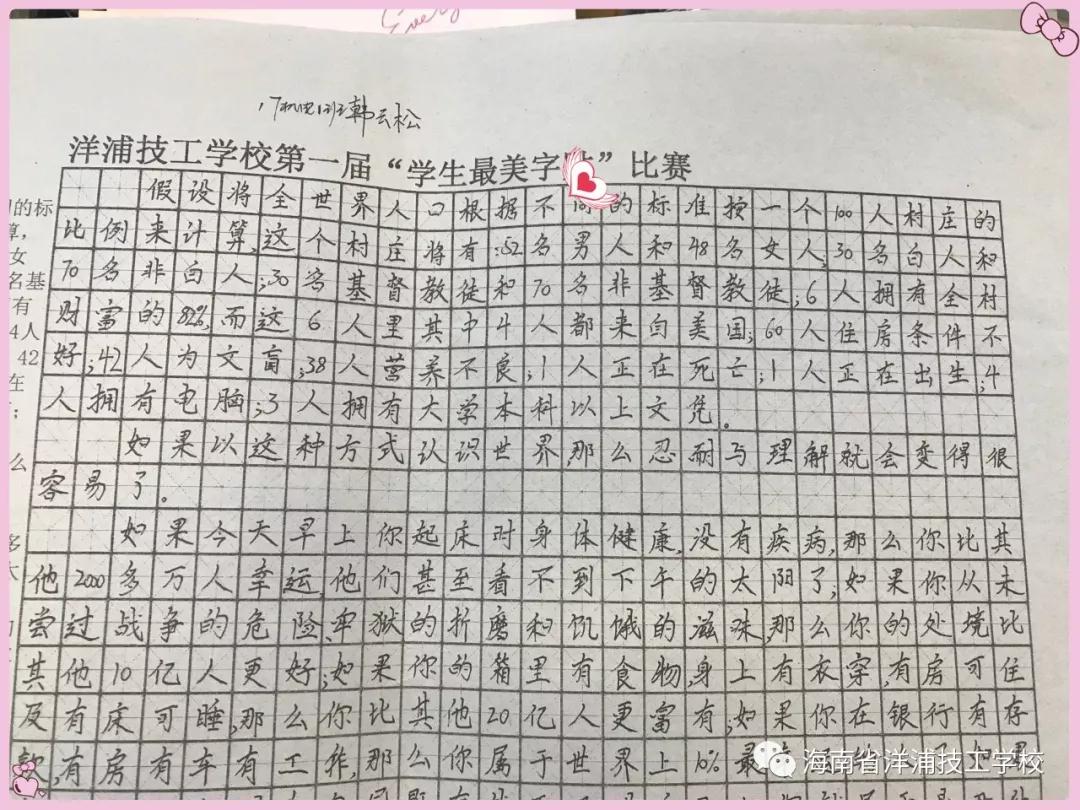 Every
17机电1班韩云松
洋浦技工学校第一届“学生最美字”比赛
假设将全世界人口根据不同的标准按一个100人村庄的
比例来计算,这个村庄将有:52名男人和48名女人;30名白人和
70名非白人;30名基督教徒和70名非基督教徒;6人拥有全村
财富的82%,而这6人里其中4人都来自美国;60人住房条件不
好;42人为文盲;38人营养不良;1人正在死亡;1人正在出生;4
人拥有电脑;3人拥有大学本科以上文凭。
如果以这种方式认识世界,那么忍耐与理解就会变得很
容易了。
如果今天早上你起床时身体健康,没有疾病,那么你比其
他2000多万人幸运,他们甚至看不到下午的太阳了;如果你从未
尝过战争的危险、牢狱的折磨和饥饿的滋味,那么你的处境比
其他10亿人更好;如果你的箱里有食物,身上有衣穿,有房可住
及有床可睡,那么你比其他20亿人更富有;如果你在银行有存
款,有房有车有工作,那么你属于世界上10%最
的标
算,
女
名基
有
4人
42
在
;
么
多
大
海南省洋浦技工学校